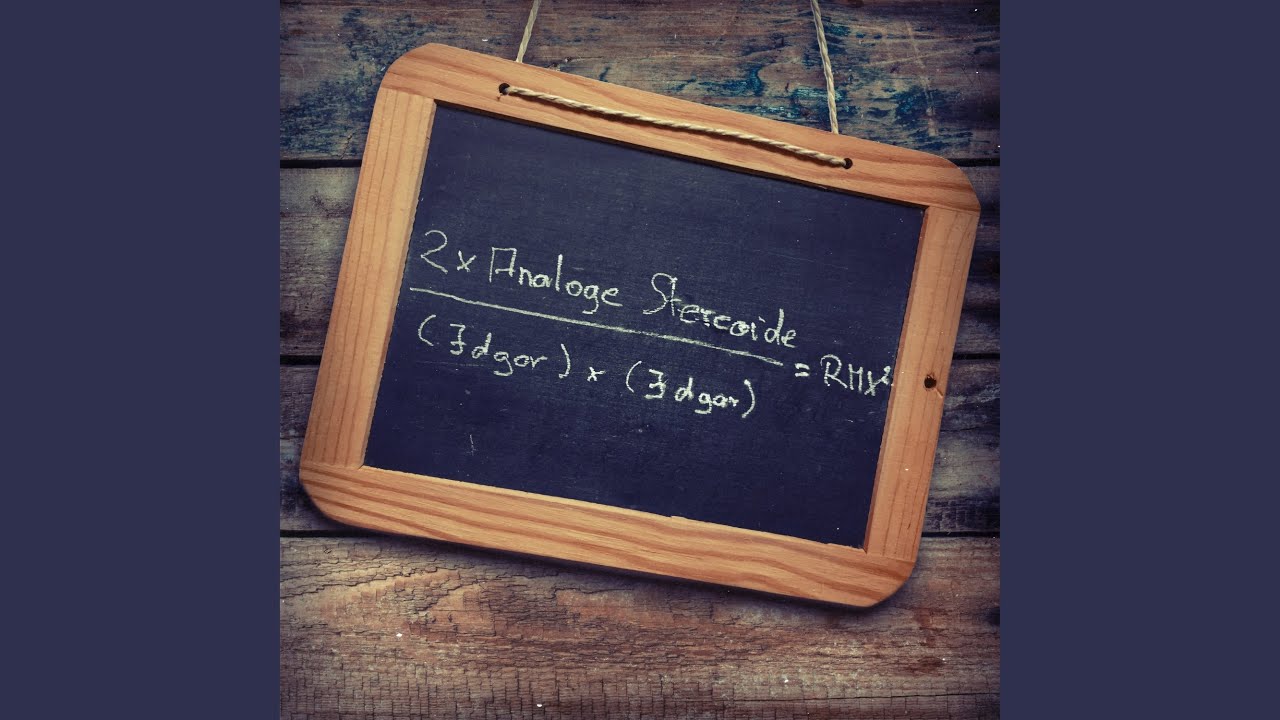 2x Analoge Stereoide
(Edgar) x (Edgar) = RMX²